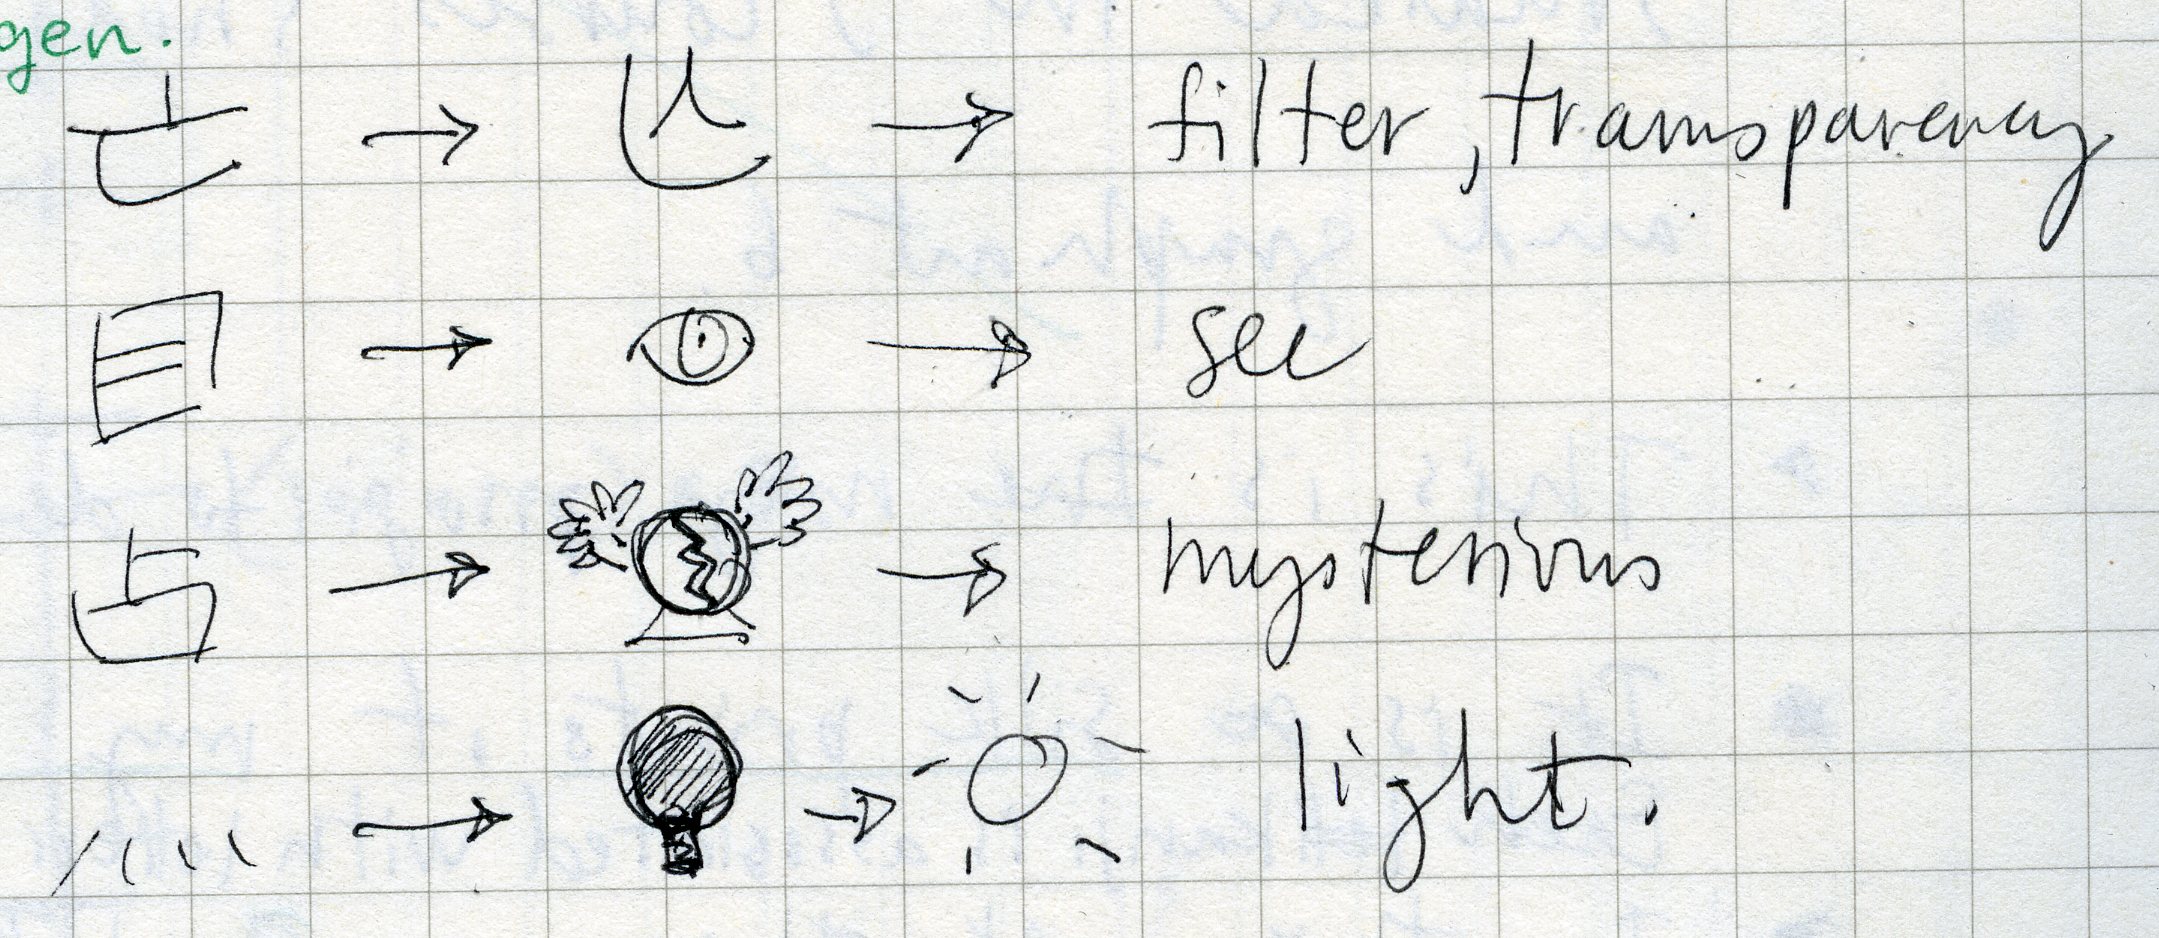 gen.
亡 → → filter, transparency
目 → → see
占 → → mysterious
灬 → → light.